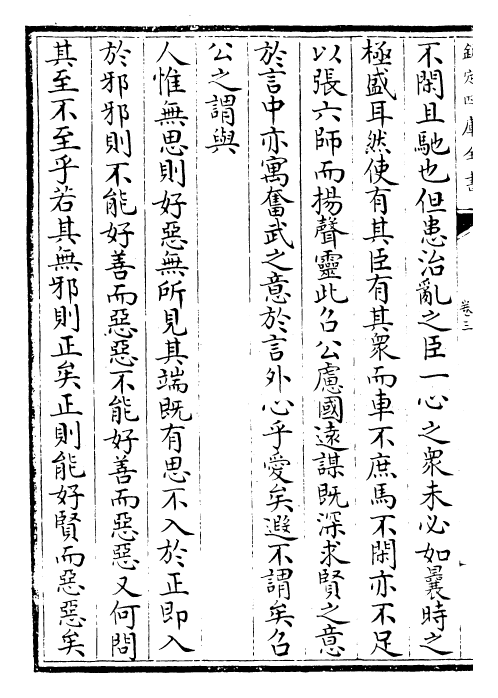 欽定四庫全書
卷三
不閑且馳也但患治亂之臣一心之衆未必如曩時之
極盛耳然使有其臣有其衆而車不庶馬不閑亦不足
以張六師而揚聲靈此召公慮國遠謀既深求賢之意
於言中亦寓奮武之意於言外心乎愛矣遐不謂矣召
公之謂與
人惟無思則好惡無所見其端既有思不入於正即入
於邪邪則不能好善而惡惡不能好善而惡惡又何問
其至不至乎若其無邪則正矣正則能好賢而惡惡矣